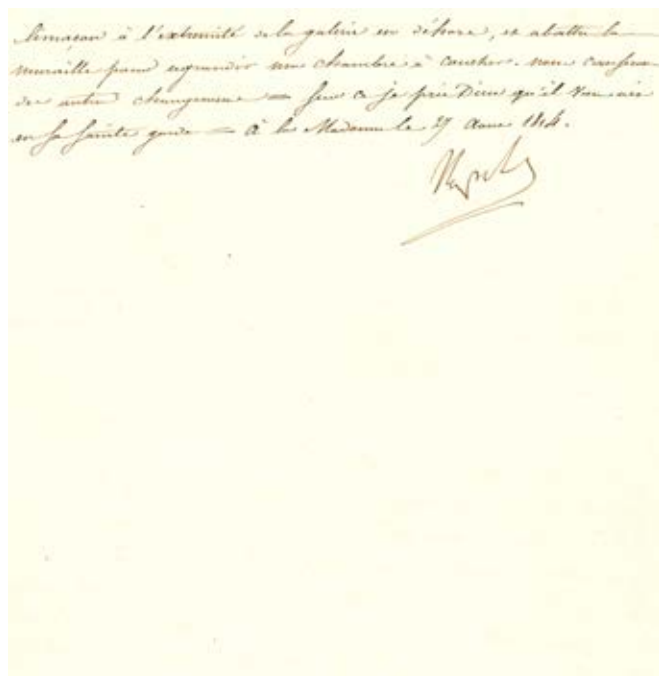 limaçon à l'extrémité de la galerie en déhors, et abattre la
muraille pour agrandir une chambre à coucher. nous causerons
des autres changemens = sur ce je prie Dieu qu'il vous ait
en sa sainte garde = à la Madonne le 27 Aout 1814.